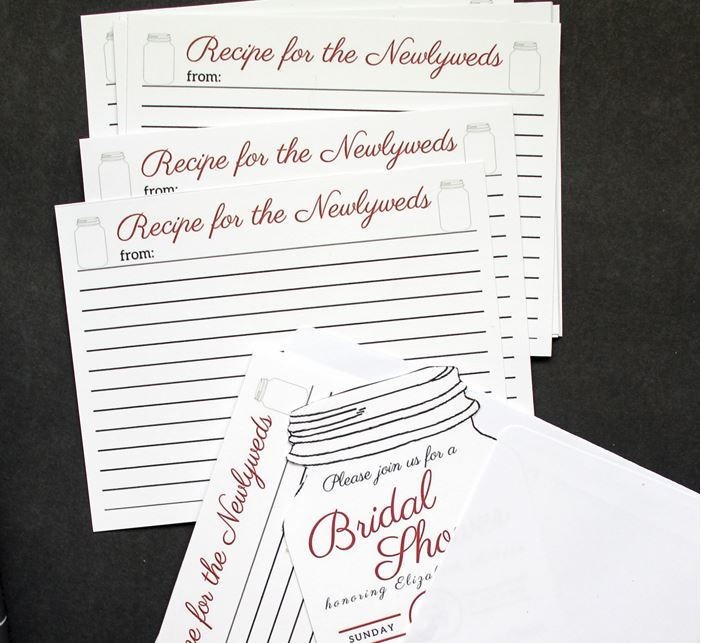 Recipe for the Newlyweds
from:
Recipe for the Newlyweds
from:
Recipe for the Newlyweds
from:
for the Newlyweds
Please join us for a
Bridal
honoring
SUNDAY